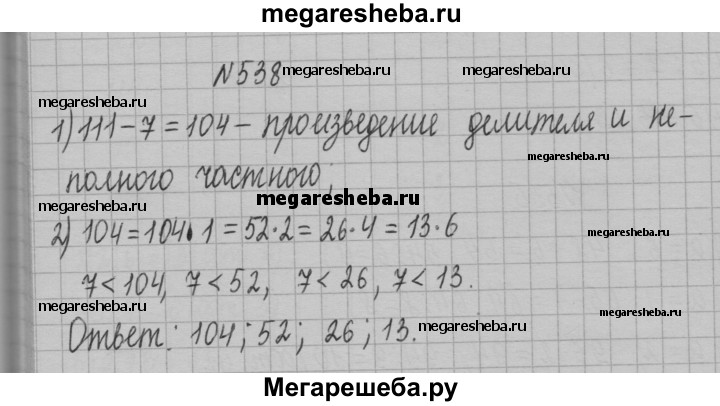 megaresheba.ru
N538 megaresheba.ru megaresheba.ru
megaresheba.ru
1) 111-7=104- произведение делителя и не-
megaresheba.ru
полного частного;
megaresheba.ru
megaresheba.ru
2) 104=104·1=52·2=26·4=13·6
megaresheba.ru
7<104, 7<52, 7<26, 7<13.
megaresheba.ru megaresheba.ru
Ответ: 104; 52; 26; 13.
megaresheba.ru
Мегарешеба.ру